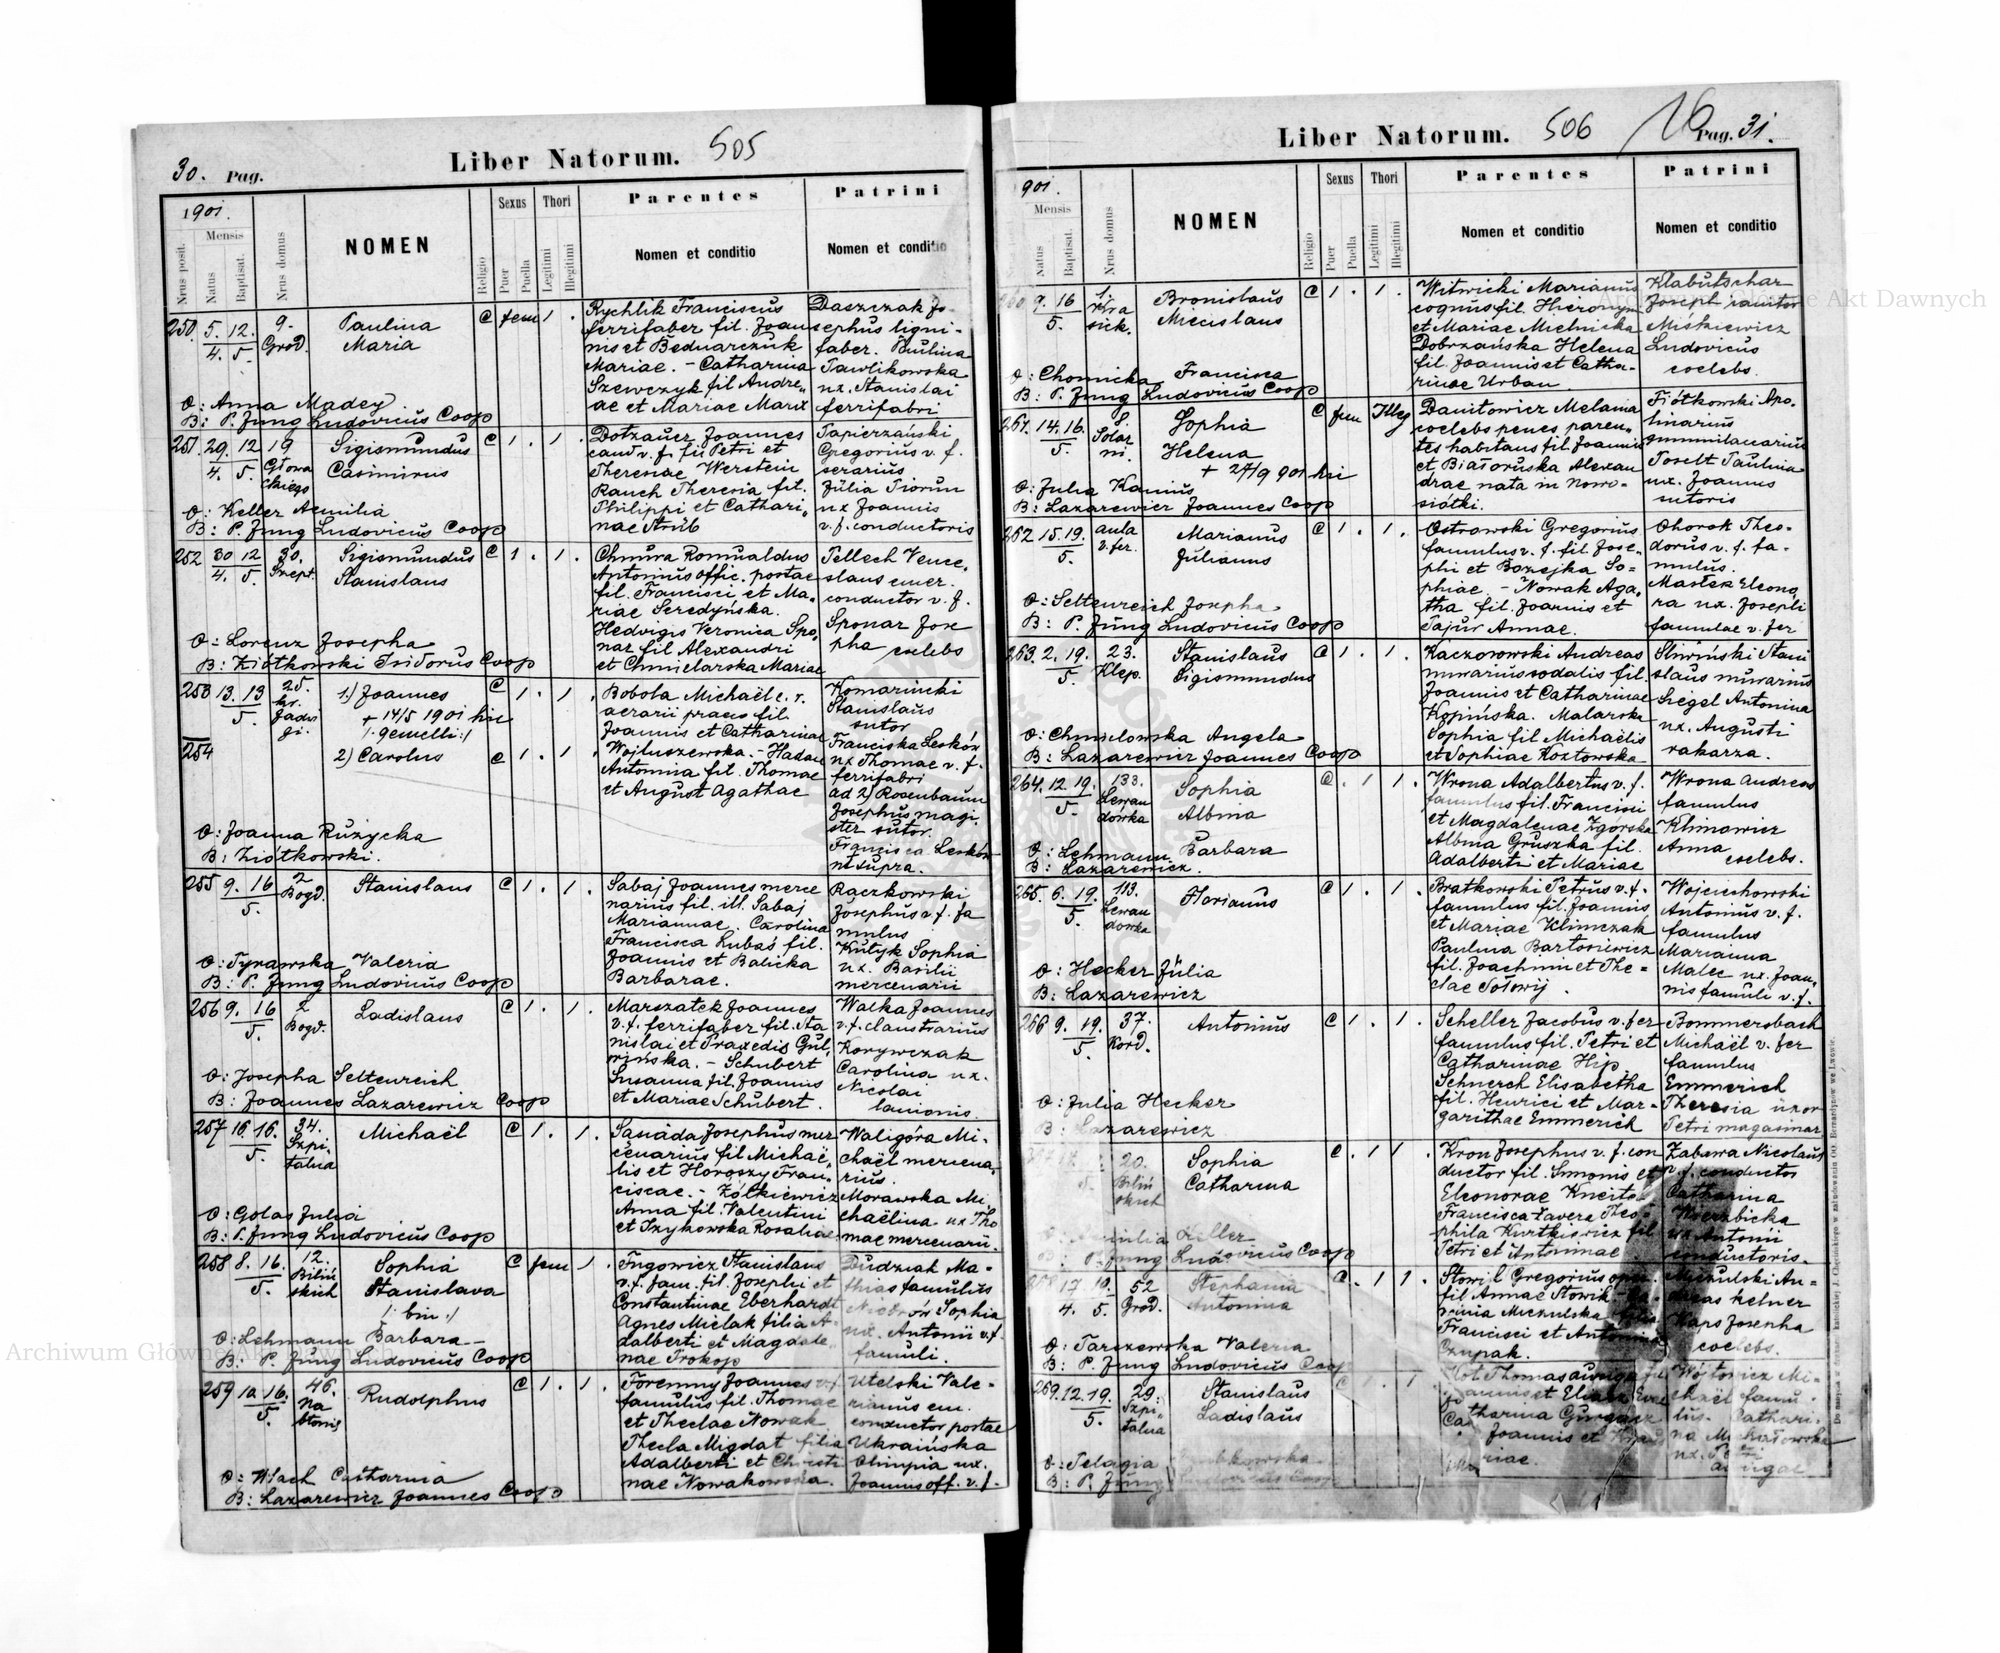 30. Pag.
Liber Natorum. 505
1901.
Mensis
Nrus posit.
Natus
Baptisat.
Nrus domus
NOMEN
Religio
Sexus
Puer
Puella
Thori
Legitimi
Illegitimi
Parentes
Nomen et conditio
Patrini
Nomen et conditio
250. 5. 12. 9. Paulina C fem 1 .
4. 5. Grod. Maria
Rychlik Franciscus
ferrifaber fil. Joan
nis et Bednarczuk
Mariae. - Catharina
Szewczyk fil Andre,
ae et Mariae
Daszczak Jo-
sephus ligni-
faber. Paulina
Pawlikowska
ux. Stanislai
ferrifabri
O: Anna Madey
B: P. Jung Ludovicus Coop
251. 29. 12 19 Sigismundus C 1 . 1 .
4. 5. Casimirus
Dotzauer Joannes
Petri et
Werstein
Rauch Theresia fil.
Philippi et Cathari-
nae
Papierzański
Gregorius v. f.
serarius
Julia
ux Joannis
v. f. conductoris
O: Keller Aemilia
B: P. Jung Ludovicus Coop
252 30 12 30. Sigismundus C 1 . 1 .
4. 5. Stanislaus
Chmura Romualdus
Antonius offic. postae
fil. Francisci et Ma,
riae Seredyńska.
Hedvigis Veronica Spo,
nar fil Alexandri
et Chmielarska Mariae
Pellech Vence,
slaus emer.
conductor v. f.
Sponar Jose
pha coelebs
O: Lorenz Josepha
B: Ziółkowski Isidorus Coop
253 13. 13 25. 1.) Joannes C 1 . 1 .
5. + 14/5 1901 hic
/: gemelli :/
254 2) Carolus C 1 . 1 .
Bobola Michaël c. r.
aerarii fil.
Joannis et Catharinae
Wojtuszewska. - Hadau
Antonina fil. Thomae
et August Agathae
Komarincki
Stanislaus
sutor
Franciska Lesków
ux Thomae v. f.
ferrifabri
ad 2) Rosenbaum
Josephus magi
ster sutor.
Francisca Lesków
ut supra.
O: Joanna Rużycka
B: Ziółkowski.
255 9. 16 2 Stanislaus C 1 . 1 .
5. Bogd.
Sabaj Joannes merce
narius fil. ill. Sabaj
Mariannae. Carolina
Francisca Lubaś fil.
Joannis et Balicka
Barbarae.
Raczkowski
Josephus v. f. fa
mulus
Kutyk Sophia
ux. Basilii
mercenarii
O: Tyrawska Valeria
B: P. Jung Ludovicus Coop
256 9. 16 2 Ladislaus C 1 . 1 .
5. Bogd.
Marszałek Joannes
v. f. ferrifaber fil. Sta
nislai et Praxedis Gul,
wińska. - Schubert
Susanna fil. Joannis
et Mariae Schubert.
Walka Joannes
v. f. claustrarius
Korywczak
Carolina ux.
Nicolai
lanionis.
O: Josepha Seltenreich
B: Joannes Lazarewicz Coop
257 16. 16. 34. Michaël C 1 . 1 .
5. Szpi-
talna
Sanáda Josephus mer
cenarius fil Michaë,
lis et Horoszy Fran,
ciscae. - Żółkiewicz
Anna fil. Valentini
et Izykowska Rosaliae
Waligóra Mi-
chaël mercena,
rius.
Morawska Mi
chaëlina ux Tho
mae mercenarii.
O: Golas Julia
B: P. Jung Ludovicus Coop
258 8. 16. 12. Sophia C fem 1 .
5. Biliń Stanislava
skich /: bin :/
Ingowicz Stanislaus
v. f. fam. fil. Josephi et
Constantinae Eberhardt
Agnes Mielak filia A-
dalberti et Magdale,
nae Prokop
Dudziak Ma-
thias famulus
Sophia
ux. Antonii v. f.
famuli.
O: Lehmann Barbara -
B: P. Jung Ludovicus Coop
259 10 16. 46. Rudolphus C 1 . 1 .
5. Na
Błonie
Foremny Joannes v. f.
famulus fil. Thomae
et Theclae Nowak
Thecla Migdat filia
Adalberti et Christi
nae Nowakowska.
Utelski Vale-
rianus em.
conductor postae
Ukraińska
Olimpia ux.
Joannis off. v. f.
O: Wlach Catharina
B: Lazarewicz Joannes Coop
Liber Natorum. 506 16 Pag. 31.
901.
Mensis
Natus
Baptisat.
Nrus domus
NOMEN
Religio
Sexus
Puer
Puella
Thori
Legitimi
Illegitimi
Parentes
Nomen et conditio
Patrini
Nomen et conditio
260 9. 16 1. Bronislaus C 1 . 1 .
5. Miecislaus
Witwicki Marianus
coquus fil. Hieronym
et Mariae Mielnicka
Dobrzańska Helena
fil. Joannis et Catha-
rinae Urban
Klabutschar
Joseph
Miśkiewicz
Ludovicus
coelebs.
O: Chomicka Francisca
B: P. Jung Ludovicus Coop
261. 14. 16. 8 Sophia C fem Illeg
5. Solar Helena
ni. + 27/9 901 hic
Danitowicz Melania
coelebs penes paren-
tes habitans fil. Joannis
et Białoruska Alexan
drae nata in Nowo-
siółki.
Fiótkowski Apo-
linarius
Toselt Paulina
ux. Joannis
sutoris
O: Julia Kanius
B: Lazarewicz Joannes Coop
262 15. 19. aula Marianus C 1 . 1 .
5. v. fer. Julianus
Ostrowski Gregorius
famulus v. f. fil. Jose-
phi et Bozejka So-
phiae. - Nowak Aga-
tha fil. Joannis et
Pajur Annae.
Ohorok Theo-
dorus v. f. fa-
mulus.
Masłek Eleono,
ra ux. Josephi
famulae v. fer
O: Seltenreich Josepha
B: P. Jung Ludovicus Coop
263. 2. 19. 23. Stanislaus C 1 . 1 .
5. Klep. Sigismundus
Kaczorowski Andreas
murarius sodalis fil.
Joannis et Catharinae
Kopińska. Malarska
Sophia fil Michaëlis
et Sophiae Kozłowska
Sliwiński Stani
slaus murarius
Siegel Antonina
ux. Augusti
rakarza.
O: Chmielowska Angela
B: Lazarewicz Joannes Coop
264. 12. 19. 133. Sophia C . 1 1 .
5. Lewan Albina
dówka
Wrona Adalbertus v. f.
famulus fil. Francisci
et Magdalenae Zgórska
Albina Gruszka fil.
Adalberti et Mariae
Wrona Andreas
famulus
Klimowicz
Anna coelebs.
O: Lehmann Barbara
B: Lazarewicz.
265. 6. 19. 113. Florianus C 1 . 1 .
5. Lewan
dówka
Bratkowski Petrus v. f.
famulus fil. Joannis
et Mariae Klimczak
Paulina Bartosiewicz
fil. Joachimi et The-
clae Sołowij.
Wojciechowski
Antonius v. f.
famulus
Marianna
Malec ux. Joan,
nis famuli v. f.
O: Hecker Julia
B: Lazarewicz
266 9. 19. 37. Antonius C 1 . 1 .
5. Kord.
Scheller Jacobus v. fer
famulus fil. Petri et
Catharinae Hip
Schnerch Elisabetha
fil. Henrici et Mar-
garithae Emmerich
Bommersbach
Michaël v. fer
famulus
Emmerich
Theresia uxor
Petri magasinar
O: Julia Hecker
B: Lazarewicz
20. Sophia C . 1 1 .
Biliń Catharina
skich
Kron Josephus v. f. con
ductor fil. Simonis et
Eleonorae
Francisca Xavera Theo-
phila Kurtkiewicz fil
Petri et Antoninae
Zabawa Nicolaus
v. f. conductor
Catharina
Wierzbicka
ux Antonii
conductoris.
Keller
B: P. Jung Ludovicus Coop
17. 19. 52 Stephania C . 1 1 .
4. 5. Grod. Antonina
Gregorius
fil Annae Słowik
Miczulska
Francisci et Antonina
Czupak.
Miczulski An-
dreas kelner
Josepha
coelebs.
O: Tarczewska Valeria
B: P. Jung Ludovicus Coop
269. 12. 19. 29. Stanislaus C 1 . 1
5. Szpi- Ladislaus
talna
Thomas
Joannis et
Catharina
Joannis et
riae.
Wójtowicz Mi-
chaël famu-
lus. Cathari-
na Michałowska
ux.
O: Pelagia
B: P. Jung Ludovicus Coop
Archiwum Główne Akt Dawnych
Archiwum Główne Akt Dawnych